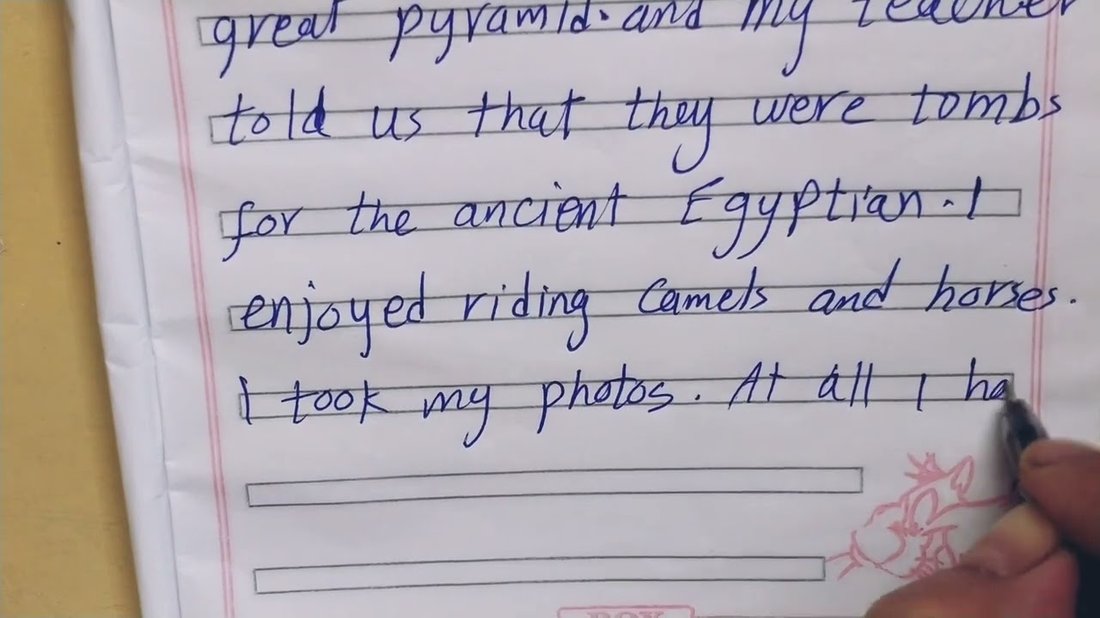 great pyramid. and my teacher
told us that they were tombs
for the ancient Egyptian. I
enjoyed riding camels and horses.
I took my photos. At all I ha
BOX